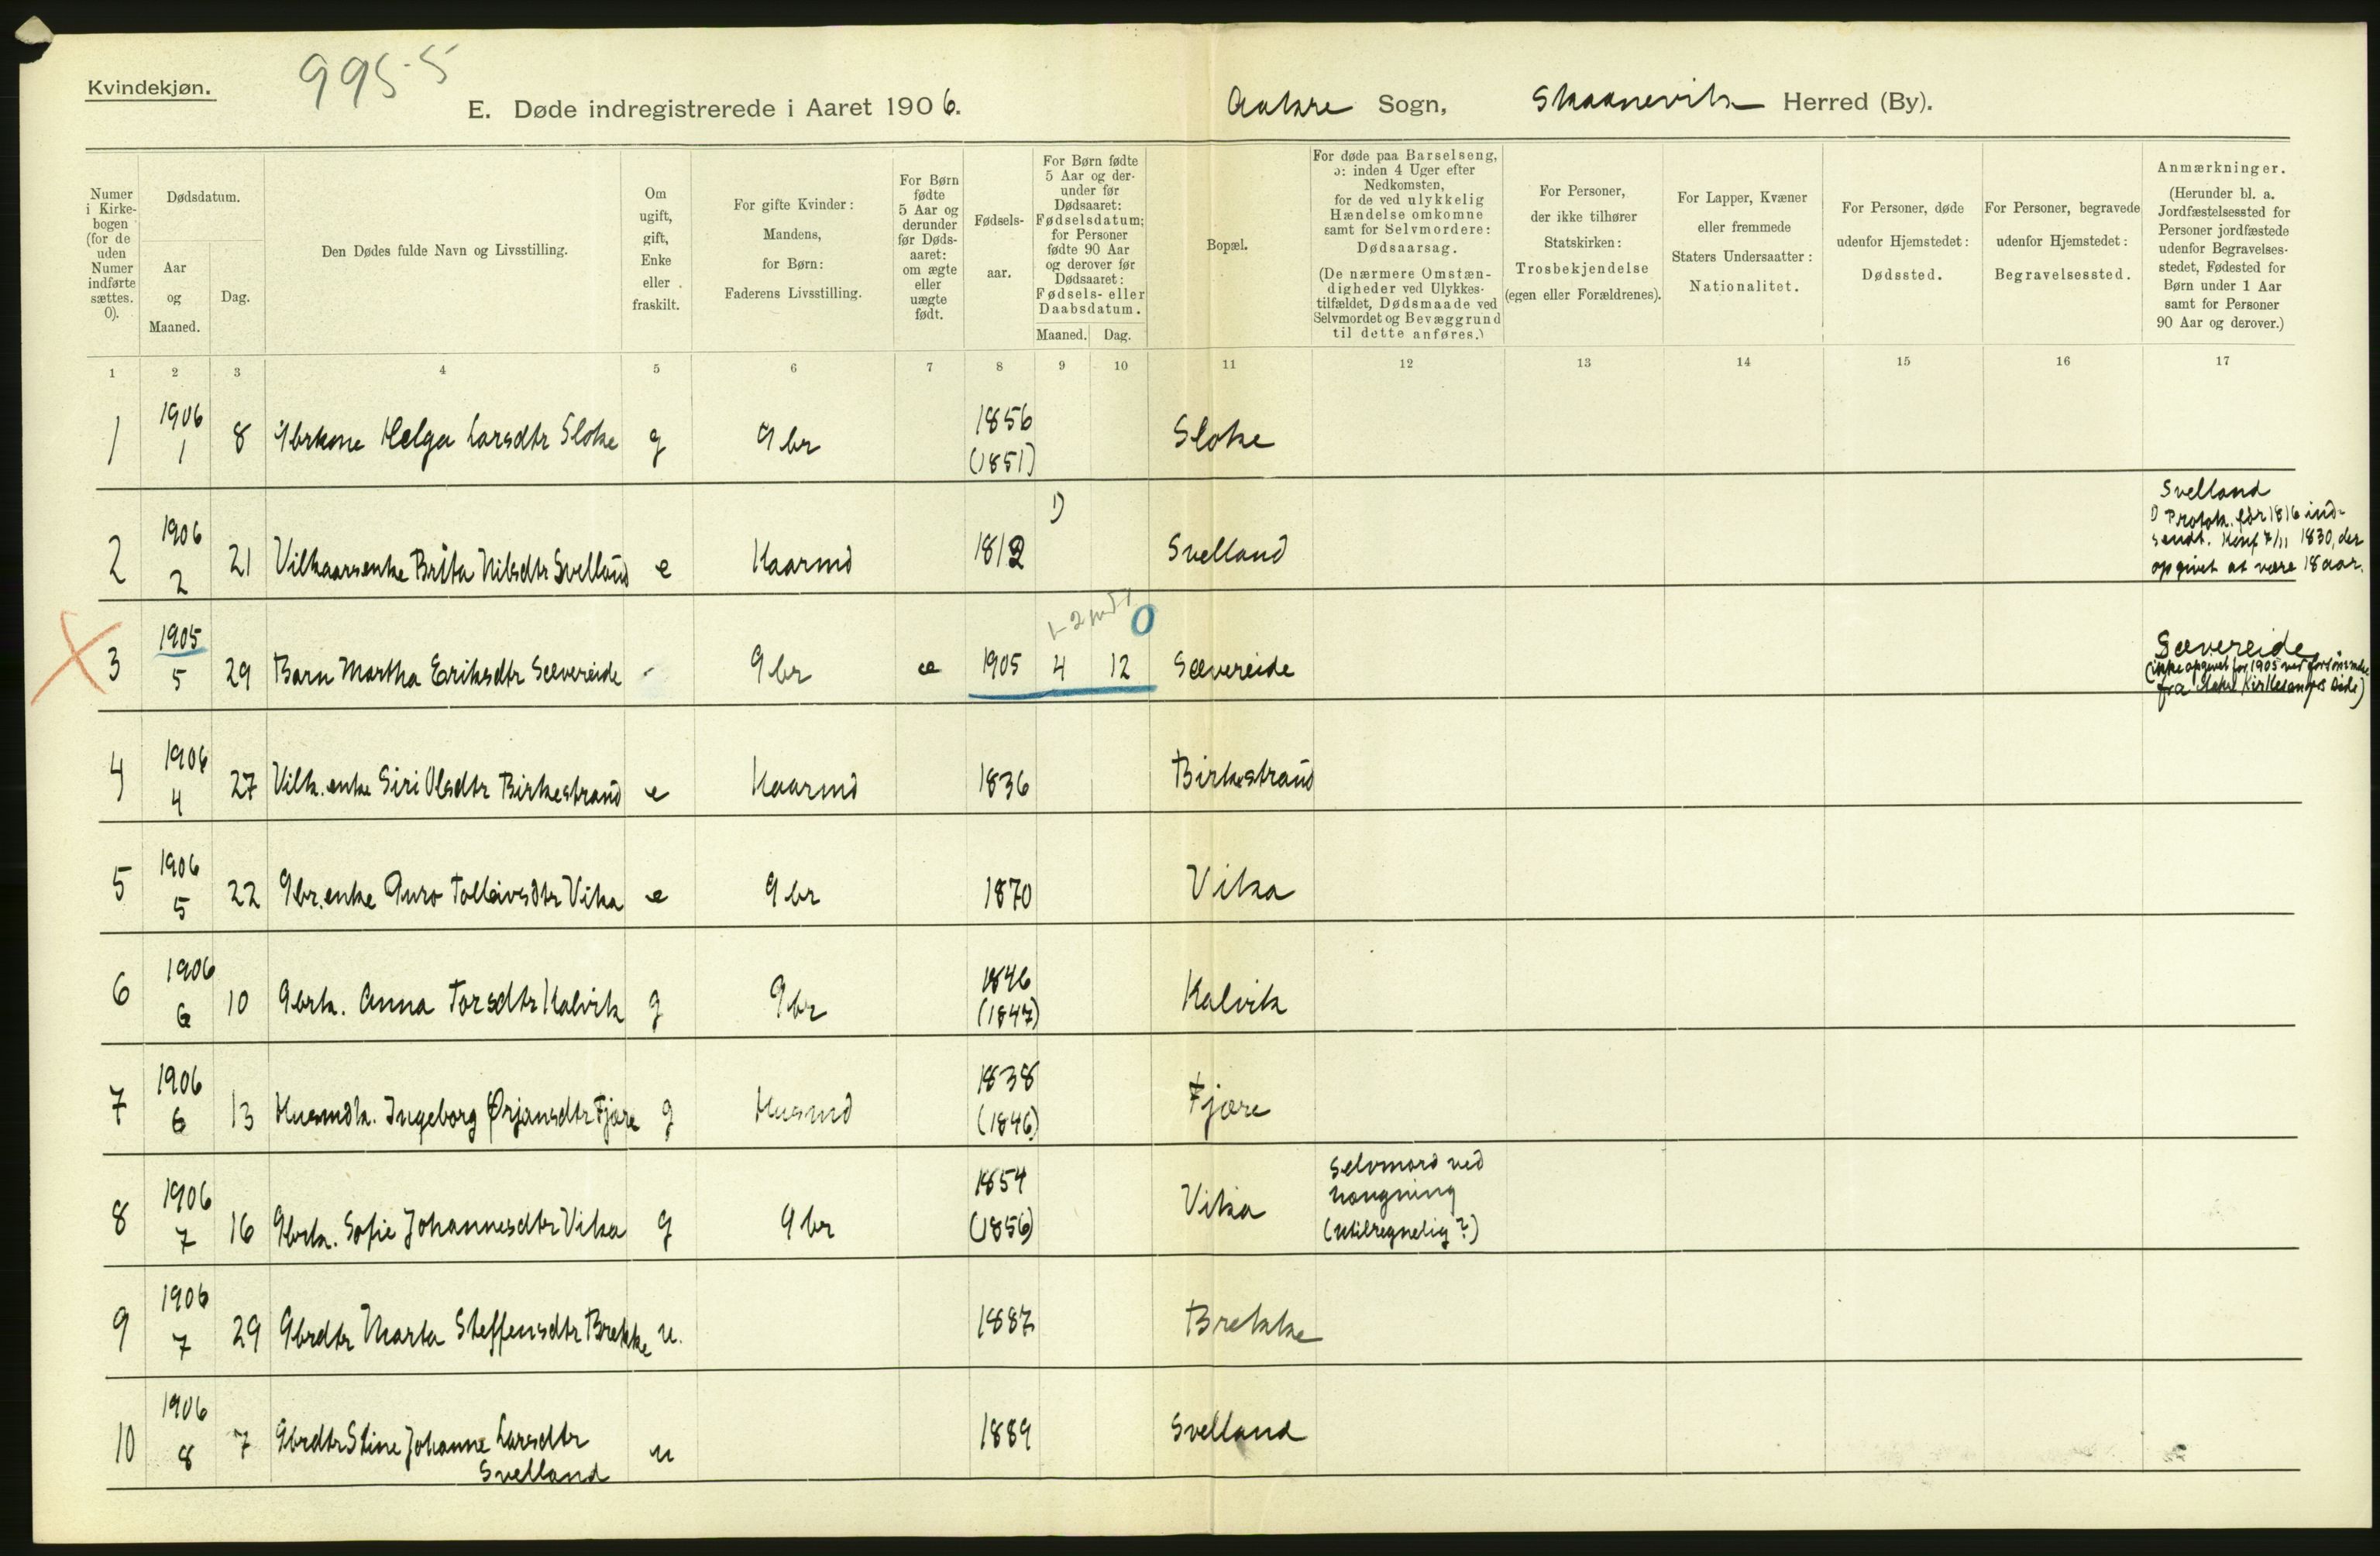 Kvindekjøn.
995-5
E. Døde indregistrerede i Aaret 1906. Aakre Sogn, Skaanevik Herred (By).
Numer i Kirke-bogen (for de uden Numer indførte sættes. 0).
Dødsdatum.
Aar og Maaned.
Dag.
Den Dødes fulde Navn og Livsstilling.
Om ugift, gift, Enke eller fraskilt.
For gifte Kvinder: Mandens, for Børn: Faderens Livsstilling.
For Børn fødte 5 Aar og derunder før Døds-aaret: om ægte eller uægte født.
Fødsels-aar.
For Børn fødte 5 Aar og der-under før Dødsaaret: Fødselsdatum; for Personer fødte 90 Aar og derover før Dødsaaret: Fødsels- eller Daabsdatum.
Maaned. Dag.
Bopæl.
For døde paa Barselseng, ɔ: inden 4 Uger efter Nedkomsten, for de ved ulykkelig Hændelse omkomne samt for Selvmordere: Dødsaarsag.
(De nærmere Omstæn-digheder ved Ulykkes-tilfældet, Dødsmaade ved Selvmordet og Bevæggrund til dette anføres.)
For Personer, der ikke tilhører Statskirken: Trosbekjendelse (egen eller Forældrenes).
For Lapper, Kvæner eller fremmede Staters Undersaatter: Nationalitet.
For Personer, døde udenfor Hjemstedet: Dødssted.
For Personer, begravede udenfor Hjemstedet: Begravelsessted.
Anmærkninger.
(Herunder bl. a. Jordfæstelsessted for Personer jordfæstede udenfor Begravelses-stedet, Fødested for Børn under 1 Aar samt for Personer 90 Aar og derover.)
1 2 3 4 5 6 7 8 9 10 11 12 13 14 15 16 17
1 1906 1 8 Gbrkone Helga Larsdtr Sloke g Gbr 1856 (1851) Sloke
2 1906 2 21 Vilkaarsenke Brita Nilsdtr Svelland e Kaarmd 1812 1) Svelland
Svelland
1) Protok. før 1816 ind-
sendt. Konf 7/11 1830, der
opgivet at være 18 aar.
3 1905 5 29 Barn Martha Eriksdtr Sævereide - Gbr æ 1905 4 12 Sævereide
1-2 md
0
Sævereide
(ikke opgivet for 1905 ved forsømmelse
fra Kirkesangers side)
4 1906 4 27 Vilk. enke Siri Olsdtr Birkestrand e Kaarmd 1836 Birkestrand
5 1906 5 22 Gbr.enke Guro Tolleivsdtr Vika e Gbr 1870 Vika
6 1906 6 10 Gbrk. Anna Torsdtr Kalvik g Gbr 1846 (1847) Kalvik
7 1906 6 13 Husmdk. Ingeborg Ørjansdtr Fjære g Husmd 1838 (1846) Fjære
8 1906 7 16 Gbrk. Sofie Johannesdtr Vika g Gbr 1854 (1856) Vika
Selvmord ved
hængning
(utilregnelig?)
9 1906 7 29 Gbrdtr Marta Steffensdtr Brekke u. 1887 Brekke
10 1906 8 7 Gbrdtr Stine Johanne Larsdtr
Svelland u 1889 Svelland